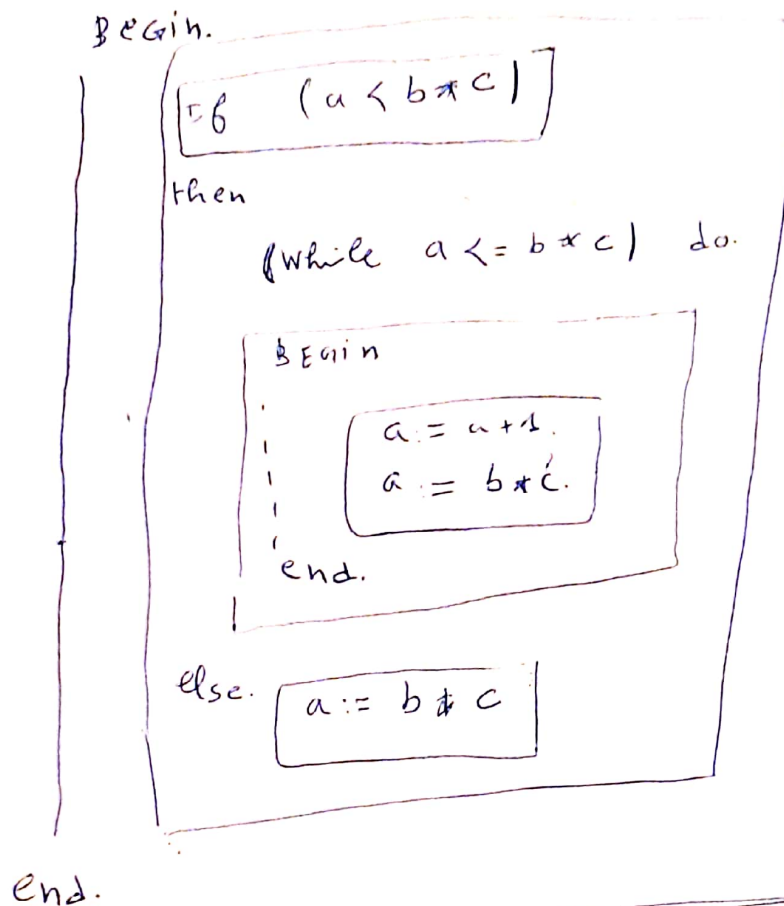 BeGin.
If (a < b*c)
then
(while a <= b * c) do.
BEGin
a := a+1.
a := b*c.
end.
else. a := b * c
end.